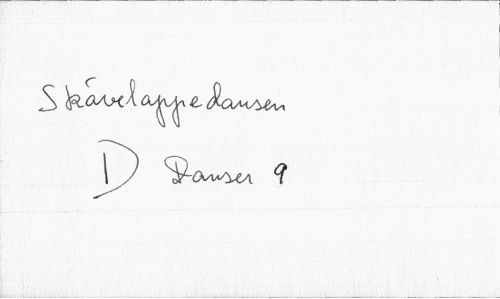 Skåvelappedansen
D Danser 9